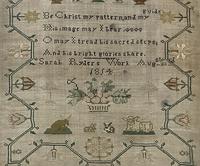 guide
Be Christ my pattern and my
His image may I bear
O may I tread his sacred steps
And his bright glories share
Sarah Ryders Work Aug
1854